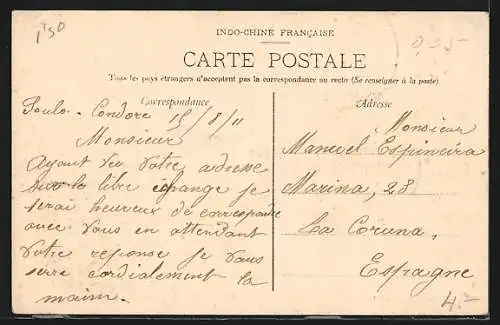 1'50
0.5-
INDO-CHINE FRANÇAISE
CARTE POSTALE
Tous les pays étrangers n'acceptent pas la correspondance au recto (Se renseigner à la poste)
Correspondance
Adresse
Poulo-Condore 15/8/11
Monsieur
Ayant vu votre adresse
sur le libre échange je
serai heureux de correspondre
avec vous en attendant
votre réponse je vous
serre cordialement la
main.
Monsieur
Manuel Espineira
Marina, 28
La Coruna,
Espagne
4.-